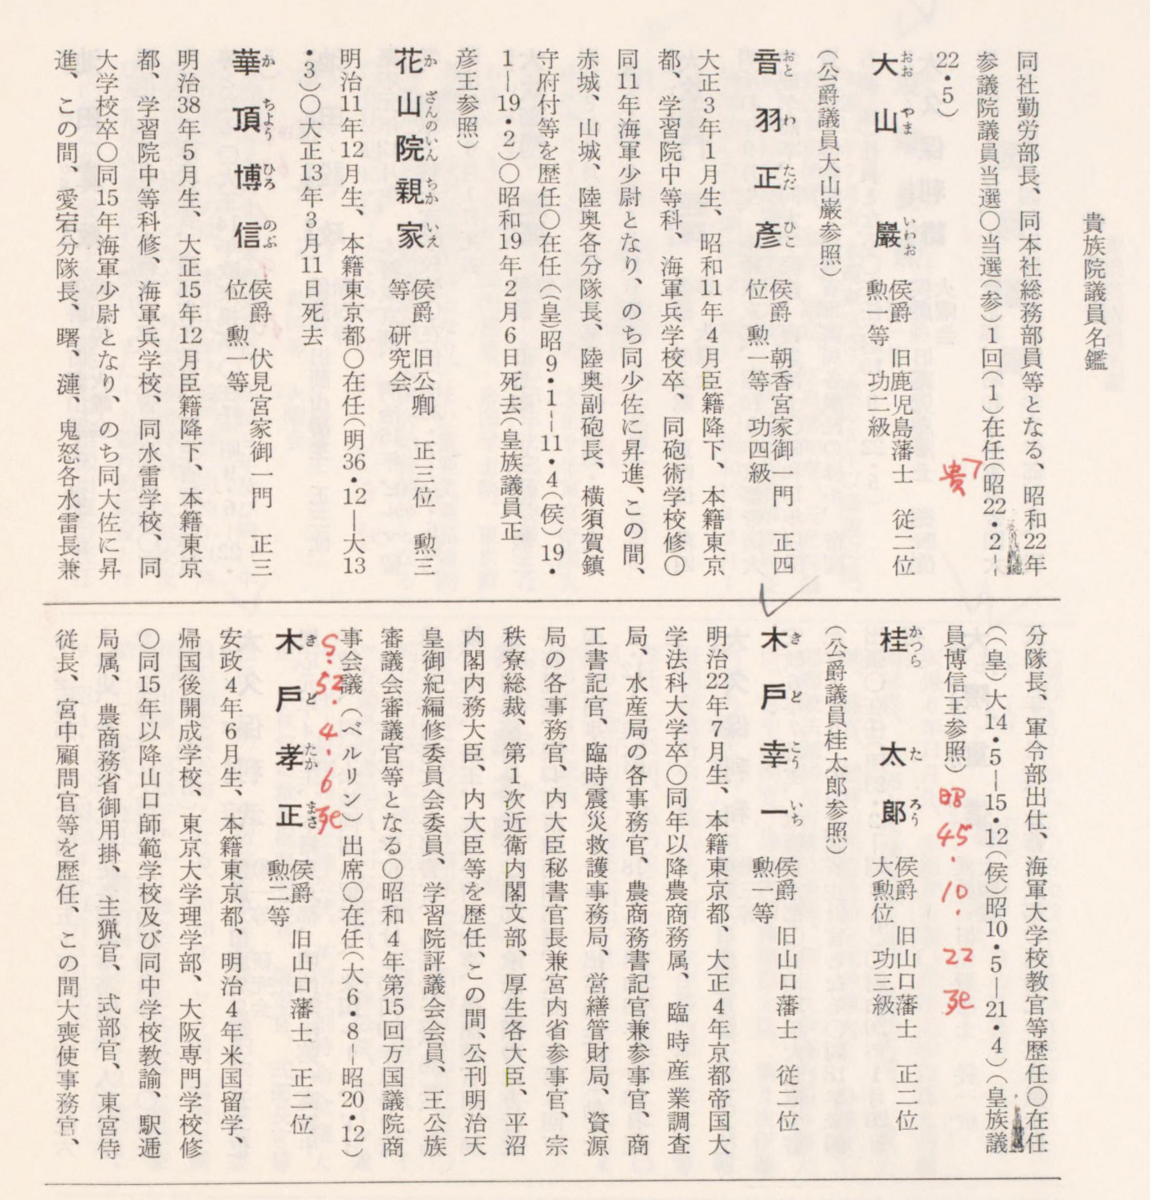 貴族院議員名鑑
同社勤労部長、同本社総務部員等となる、昭和22年
参議院議員当選〇当選(参)1回(1)在任(昭22・2−
22・5)
貴
大山巖 おおやまいわお 侯爵 旧鹿児島藩士 従二位
勲一等 功二級
(公爵議員大山巌参照)
音羽正彥 おとわただひこ 侯爵 朝香宮家御一門 正四
位 勲一等 功四級
大正3年1月生、昭和11年4月臣籍降下、本籍東京
都、学習院中等科、海軍兵学校卒、同砲術学校修〇
同11年海軍少尉となり、のち同少佐に昇進、この間、
赤城、山城、陸奥各分隊長、陸奥副砲長、横須賀鎮
守府付等を歴任〇在任((皇)昭9・1−11・4(侯)19・
1−19・2)〇昭和19年2月6日死去(皇族議員正
彦王参照)
花山院親家 かざんのいんちかいえ 侯爵 旧公卿 正三位 勲三
等 研究会
明治11年12月生、本籍東京都〇在任(明36・12−大13
・3)〇大正13年3月11日死去
華頂博信 かちようひろのぶ 侯爵 伏見宮家御一門 正三
位 勲一等
明治38年5月生、大正15年12月臣籍降下、本籍東京
都、学習院中等科修、海軍兵学校、同水雷学校、同
大学校卒〇同15年海軍少尉となり、のち同大佐に昇
進、この間、愛宕分隊長、曙、漣、鬼怒各水雷長兼
分隊長、軍令部出仕、海軍大学校教官等歴任〇在任
((皇)大14・5−15・12(侯)昭10・5−21・4)(皇族議
員博信王参照)
昭45.10.22死
桂太郎 かつらたろう 侯爵 旧山口藩士 正二位
大勲位 功三級
(公爵議員桂太郎参照)
木戸幸一 きどこういち 侯爵 旧山口藩士 従二位
勲一等
明治22年7月生、本籍東京都、大正4年京都帝国大
学法科大学卒〇同年以降農商務属、臨時産業調査
局、水産局の各事務官、農商務書記官兼参事官、商
工書記官、臨時震災救護事務局、営繕管財局、資源
局の各事務官、内大臣秘書官長兼宮内省参事官、宗
秩寮総裁、第1次近衛内閣文部、厚生各大臣、平沼
内閣内務大臣、内大臣等を歴任、この間、公刊明治天
皇御紀編修委員会委員、学習院評議会会員、王公族
審議会審議官等となる〇昭和4年第15回万国議院商
事会議(ベルリン)出席〇在任(大6・8−昭20・12)
S.52.4.6死
木戸孝正 きどたかまさ 侯爵 旧山口藩士 正二位
勲二等
安政4年6月生、本籍東京都、明治4年米国留学、
帰国後開成学校、東京大学理学部、大阪専門学校修
〇同15年以降山口師範学校及び同中学校教諭、駅逓
局属、農商務省御用掛、主猟官、式部官、東宮侍
従長、宮中顧問官等を歴任、この間大喪使事務官、